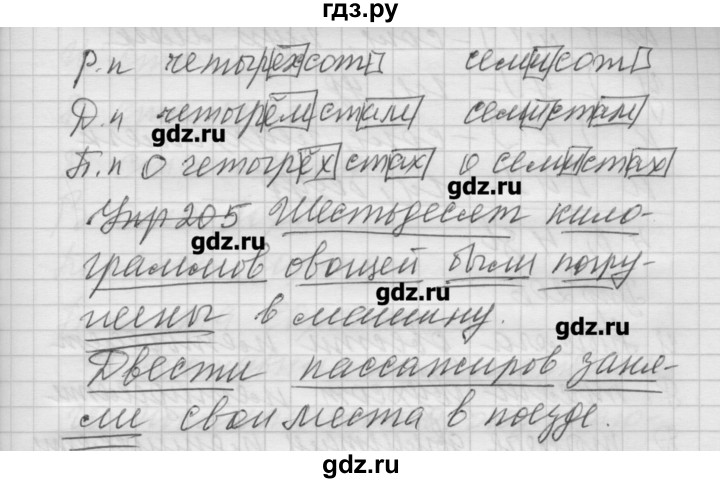 гдз.ру
Р.п четырёхсот семисот
Д.п четырёмстам семистам
gdz.ru
П.п О четырёхстах о семистах
gdz.ru
Упр 205 Шестьдесят кило-
gdz.ru
граммов овощей были погру-
gdz.ru
жены в машину.
gdz.ru
Двести пассажиров заня-
ли свои места в поезде.
gdz.ru